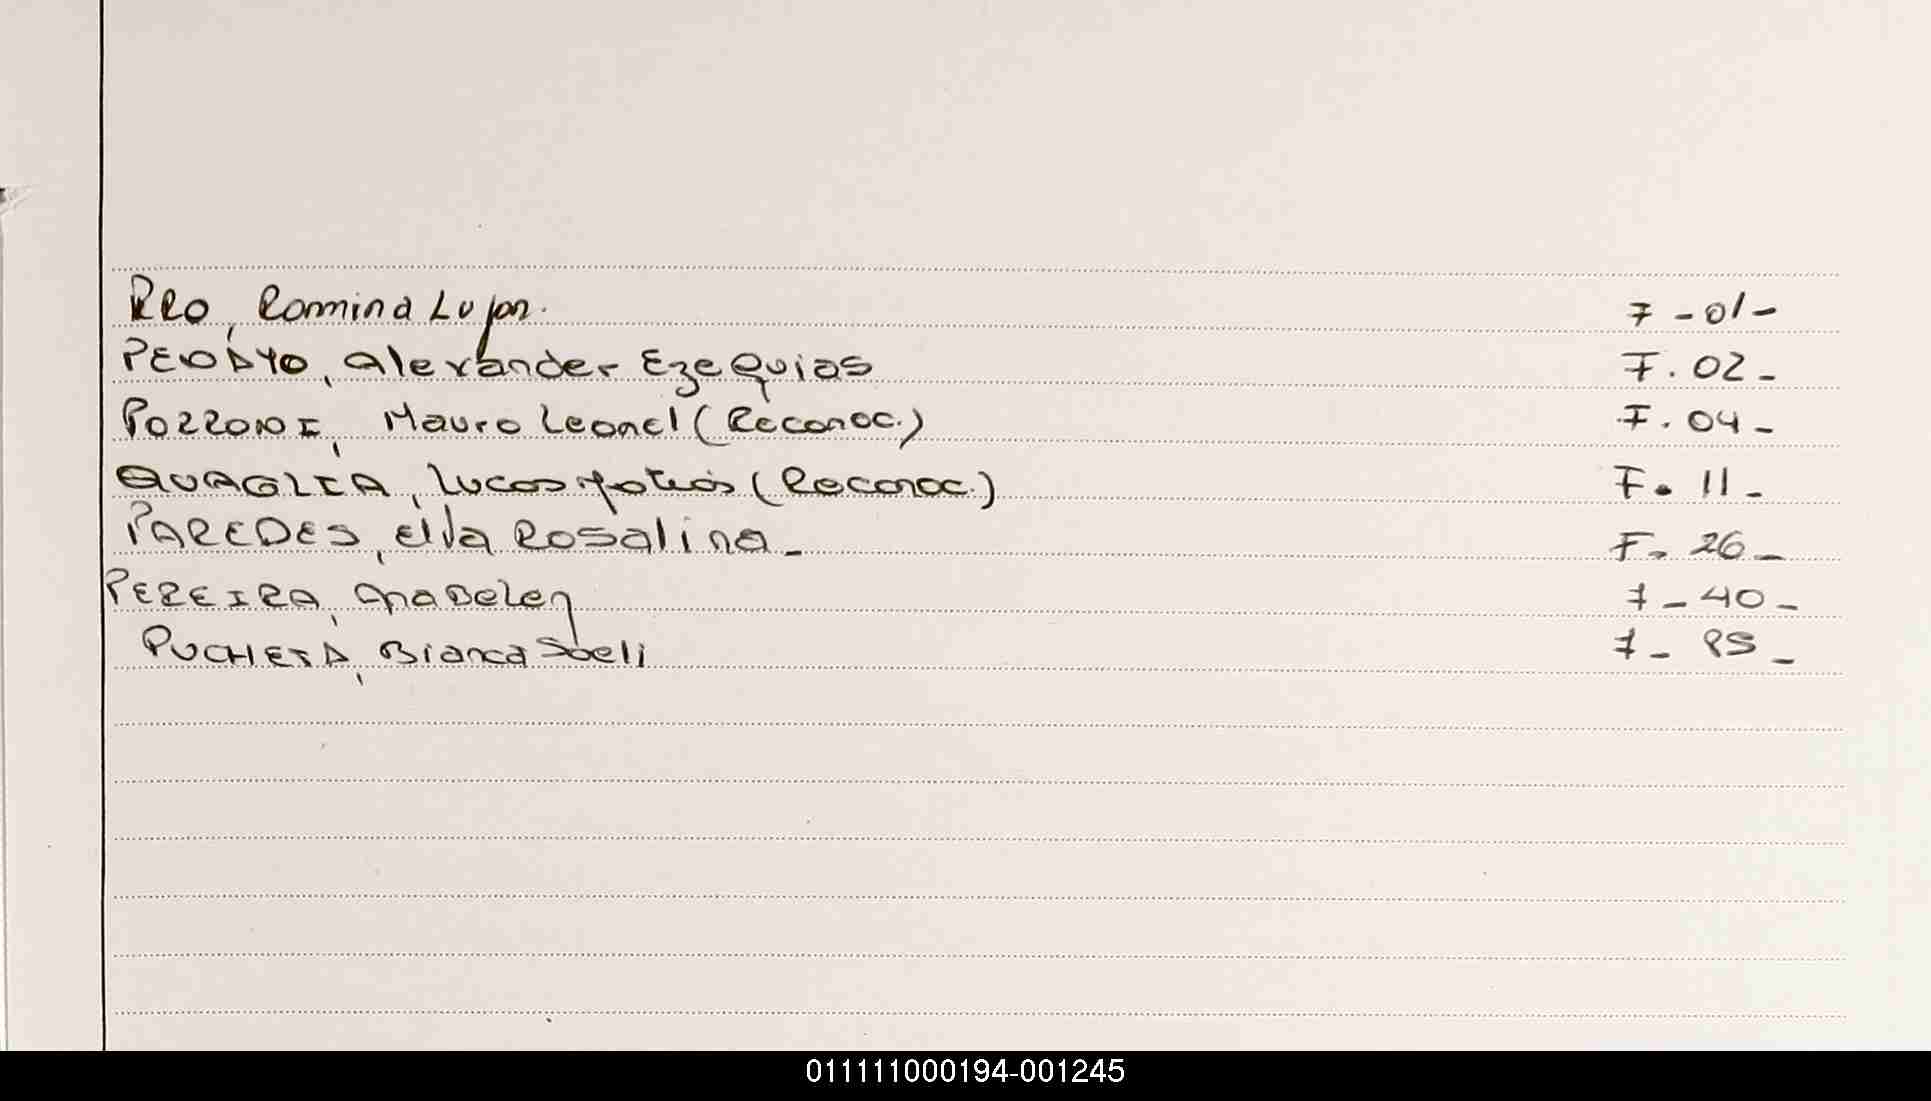 RRO, Romina Lujan. F - 01 -
PEODYO, Alexander Ezequias F. 02 -
POZZONI, Mauro Leonel (Reconoc.) F. 04 -
QUAGLIA, Lucas Matias (Reconoc.) F. 11 -
PAREDES, Elva Rosalina - F. 26 -
PEREIRA, Ana Belen F - 40 -
PUCHETA, Bianca Sbeli F -
011111000194-001245